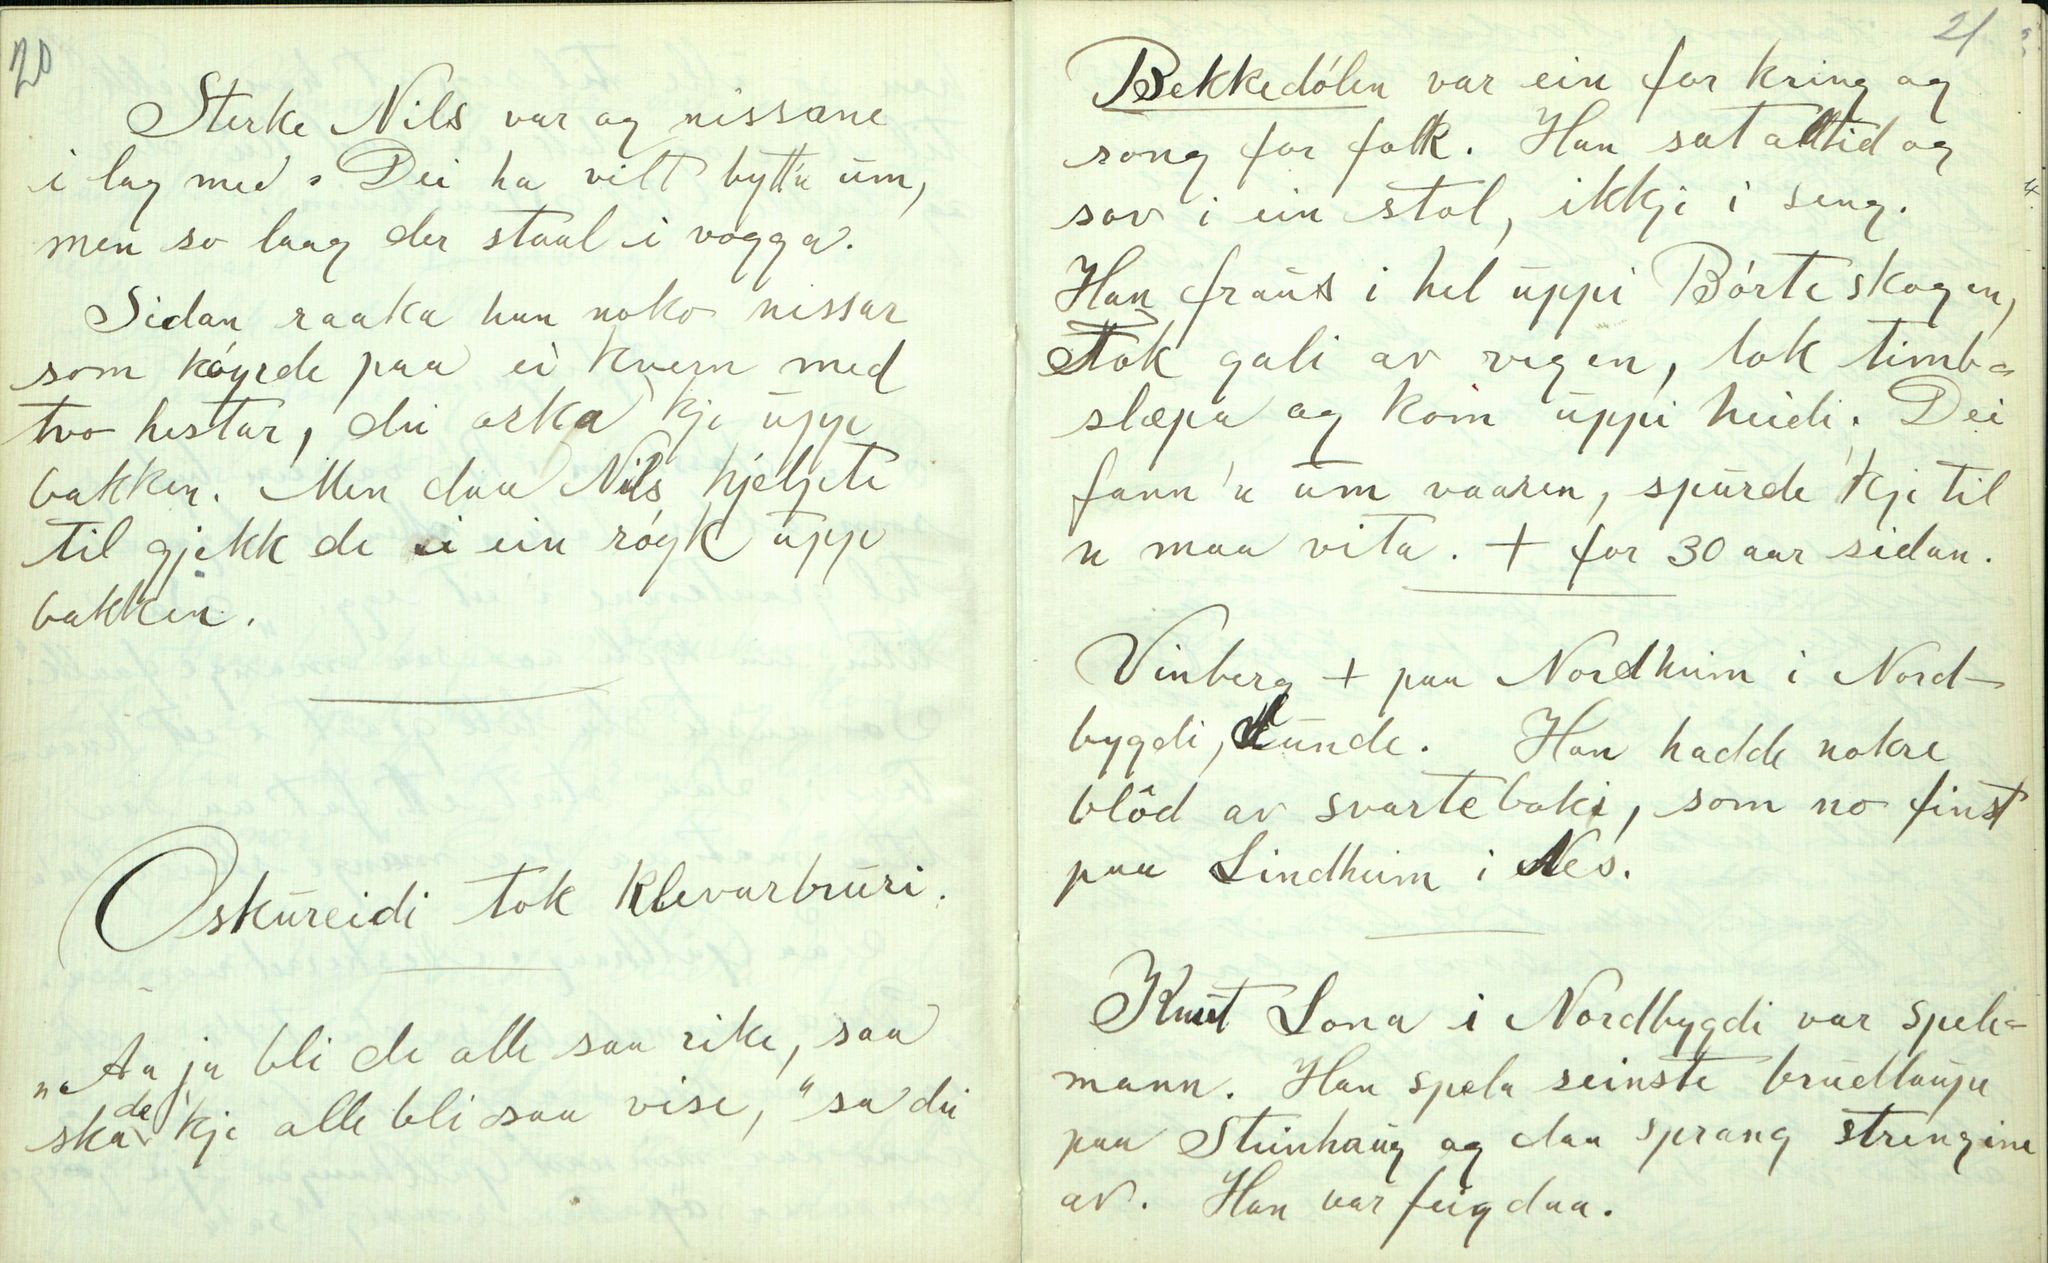 20
Sterke Nils var og nissane
i lag med. Dei ha vilt bytt'n um,
men so laag der staal i vogga.
Sidan raaka han noko nissar
som köyrde paa ei kvern med
tvo hestar, dei orka kje uppi
bakken. Men daa Nils hjelpte
til gjekk de i ein röyk uppi
bakken.
Oskureidi tok Klevarbruri.
"Aa ja bli de alle saa rike, saa
ska de 'kje alle bli saa vise," sa dei
21
Bekkedölen var ein for kring og
song for folk. Han sat alltid og
sov i ein stol, ikkji i seng.
Han fraus i hel uppi Börteskogen,
Tok gali av vegen, tok timb=
slæpa og kom uppi heidi. Dei
fann 'n um vaaren, spurde 'kje til
n maa vita. + for 30 aar sidan.
Vinberg + paa Nordheim i Nord-
bygdi, Lunde. Han hadde nokre
blôd av svarteboki, som no finst
paa Lindheim i Nes.
Knut Lona i Nordbygdi var spele=
mann. Han spela seinste brudlaupe
paa Steinhaug og daa sprang strengine
av. Han var feig daa.